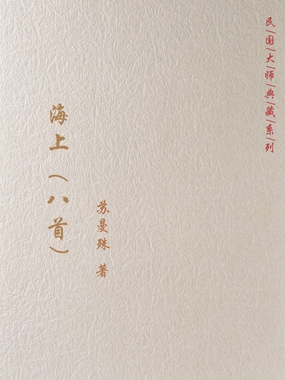 民国大师典藏系列
海上（八首）
苏曼殊 著